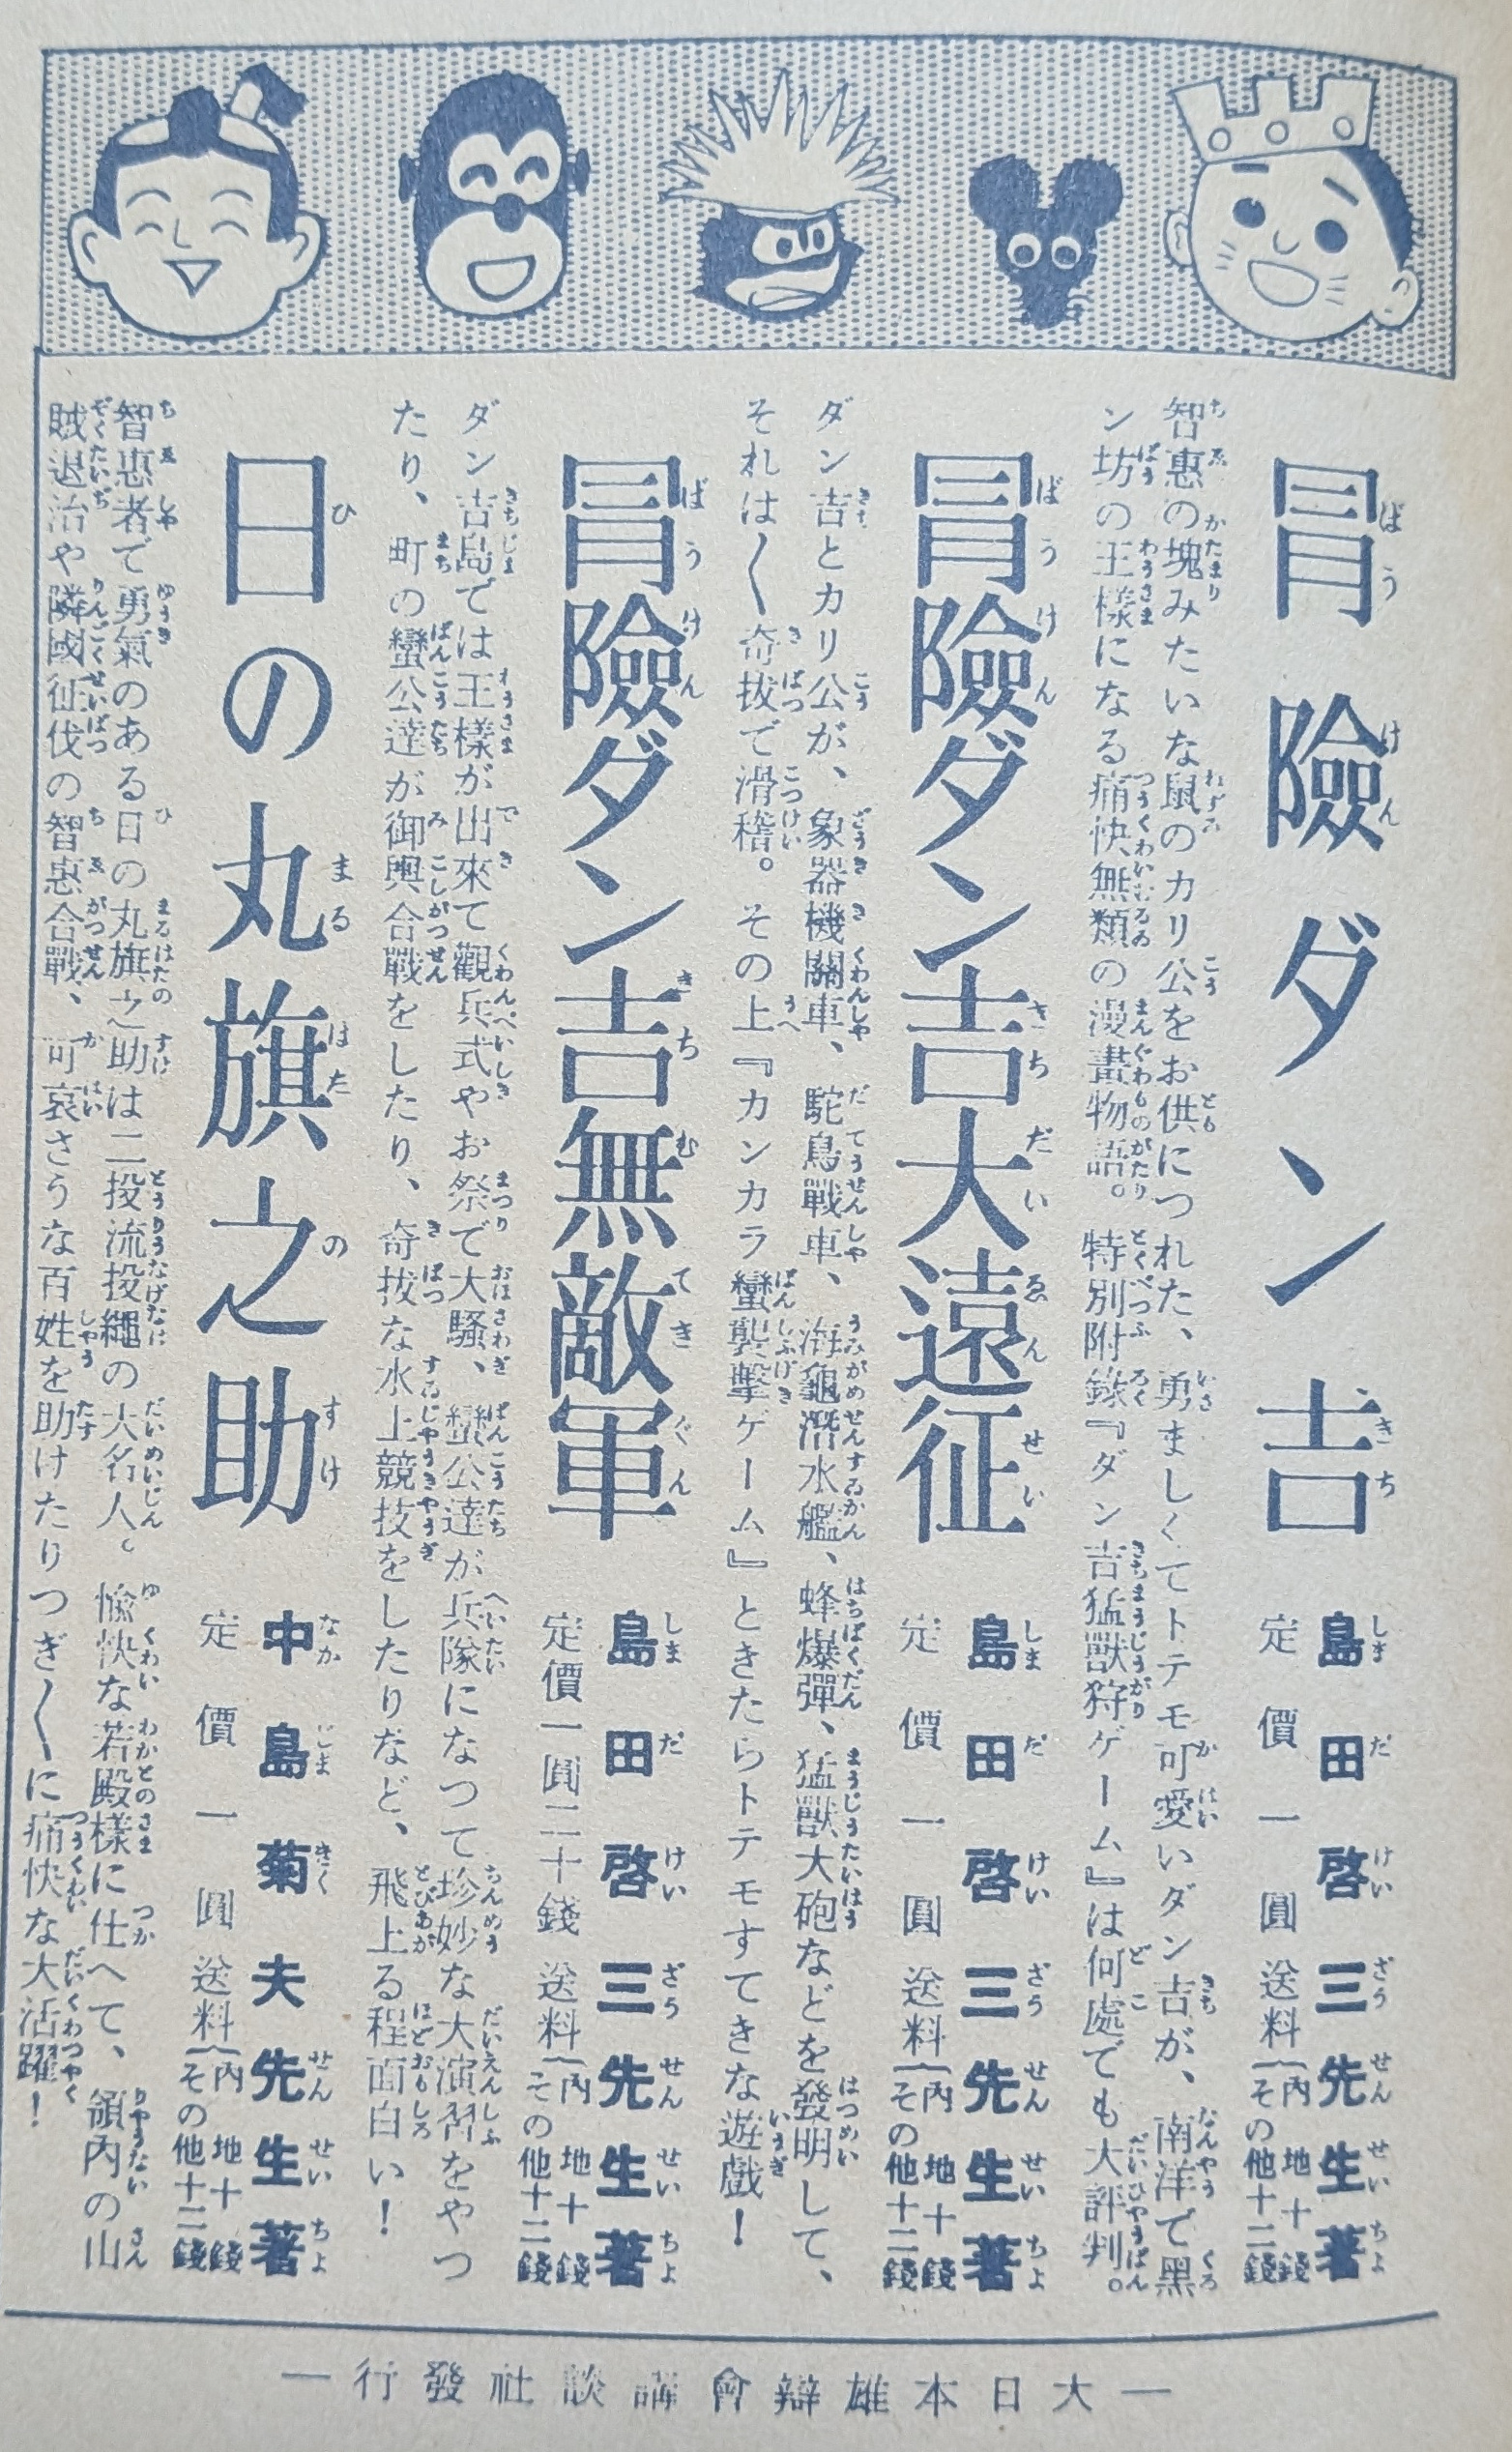 冒險ダン吉
島田啓三先生著
定價一圓 送料(内地十錢 その他十二錢)
智惠の塊みたいな鼠のカリ公をお供につれた、勇ましくてトテモ可愛いダン吉が、南洋で黑
ン坊の王樣になる痛快無類の漫畫物語。特別附錄『ダン吉猛獸狩ゲーム』は何處でも大評判。
冒險ダン吉大遠征
島田啓三先生著
定價一圓 送料(内地十錢 その他十二錢)
ダン吉とカリ公が、象器機關車、駝鳥戰車、海龜潛水艦、蜂爆彈、猛獸大砲などを發明して、
それは〱奇拔で滑稽。その上『カンカラ蠻襲擊ゲーム』ときたらトテモすてきな遊戲!
冒險ダン吉無敵軍
島田啓三先生著
定價一圓二十錢 送料(内地十錢 その他十二錢)
ダン吉島では王樣が出來て觀兵式やお祭で大騷、蠻公達が兵隊になつて珍妙な大演習をやつ
たり、町の蠻公達が御輿合戰をしたり、奇拔な水上競技をしたりなど、飛上る程面白い!
日の丸旗之助
中島菊夫先生著
定價一圓 送料(内地十錢 その他十二錢)
智惠者で勇氣のある日の丸旗之助は二投流投繩の大名人。愉快な若殿樣に仕へて、領内の山
賊退治や隣國征伐の智惠合戰、可哀さうな百姓を助けたりつぎ〱に痛快な大活躍!
―大日本雄辯會講談社發行―